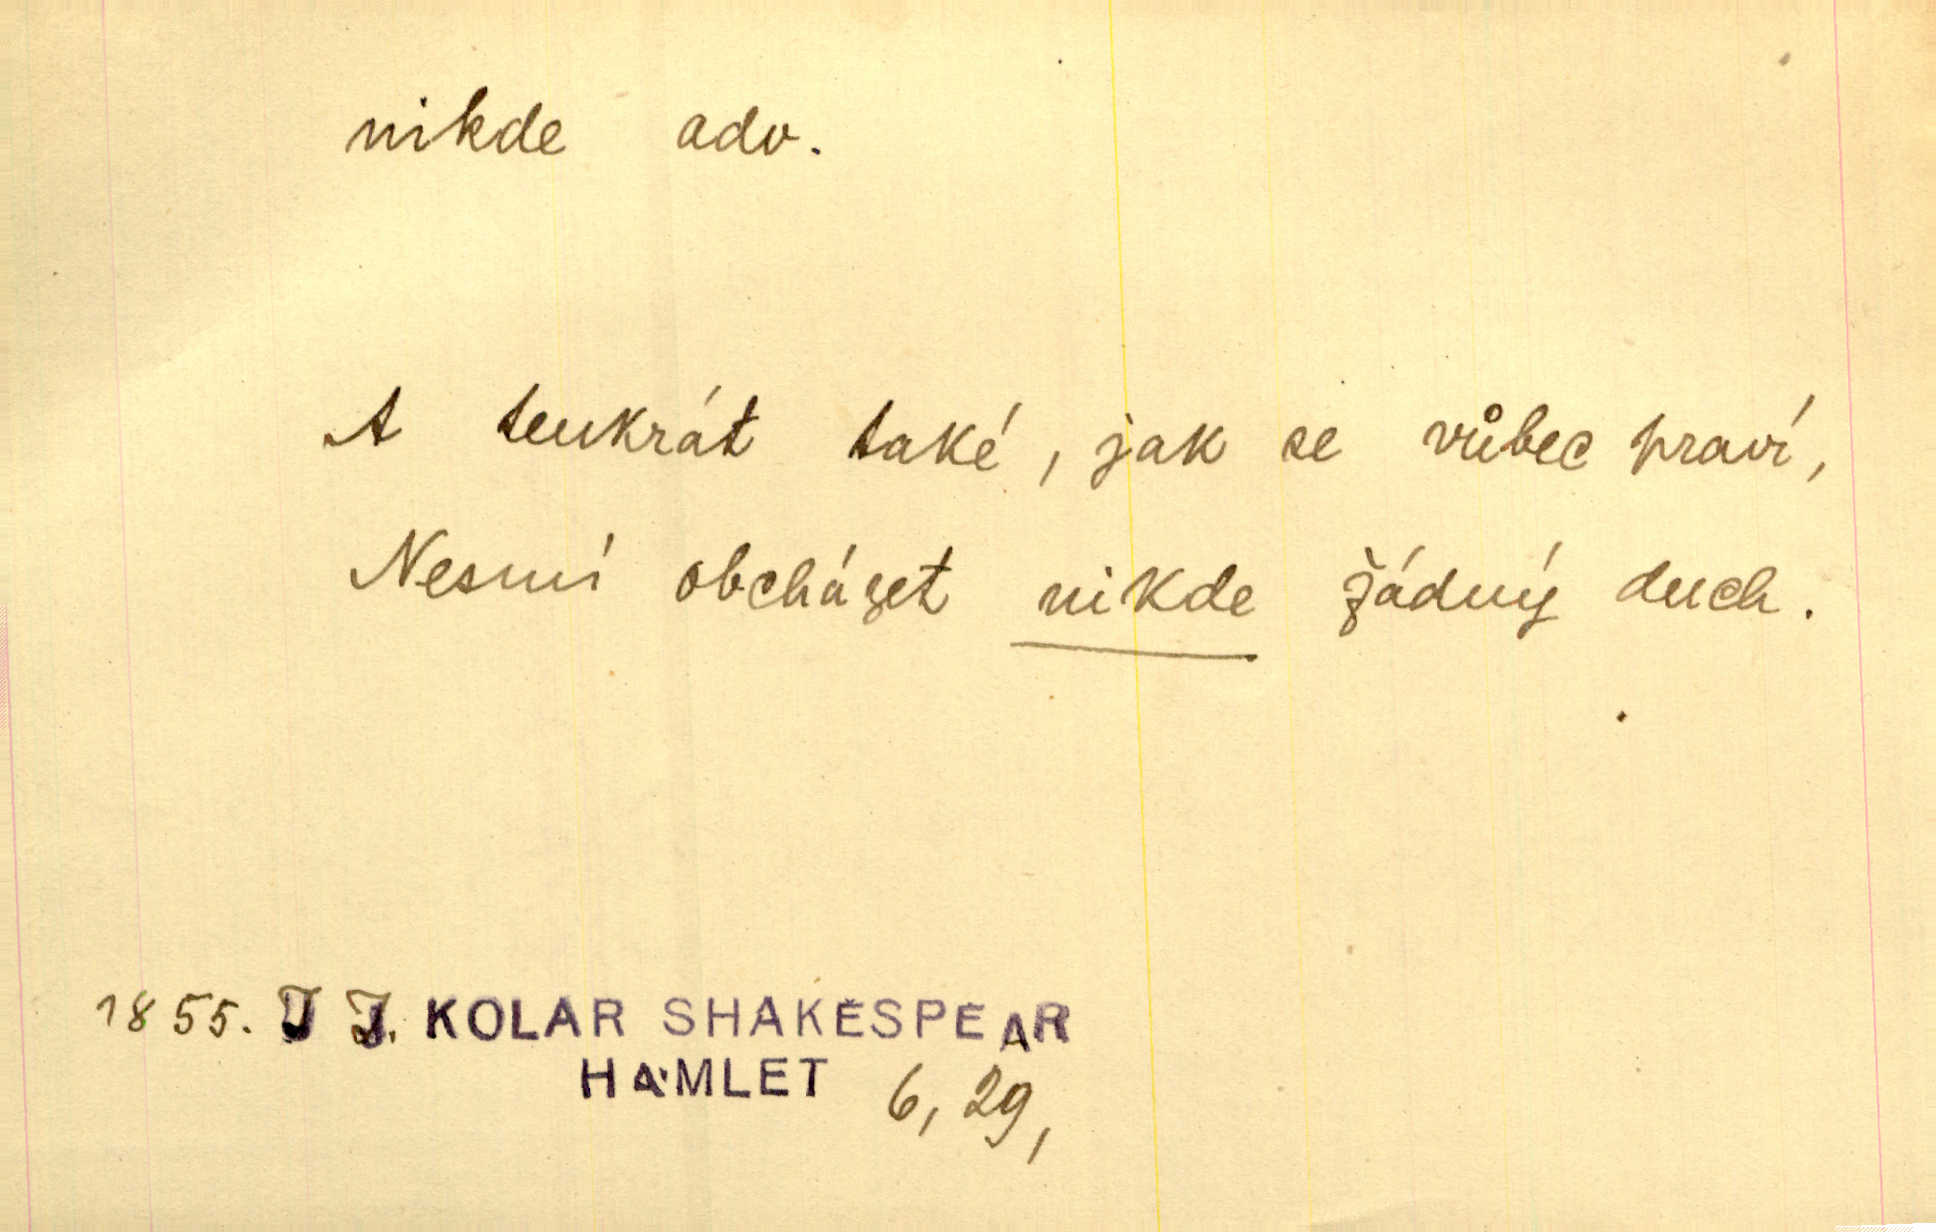 nikde adv.
A tenkrát také, jak se vůbec praví,
Nesmí obcházet nikde žádný duch.
1855. J J. KOLAR SHAKESPEAR
HAMLET 6, 29,